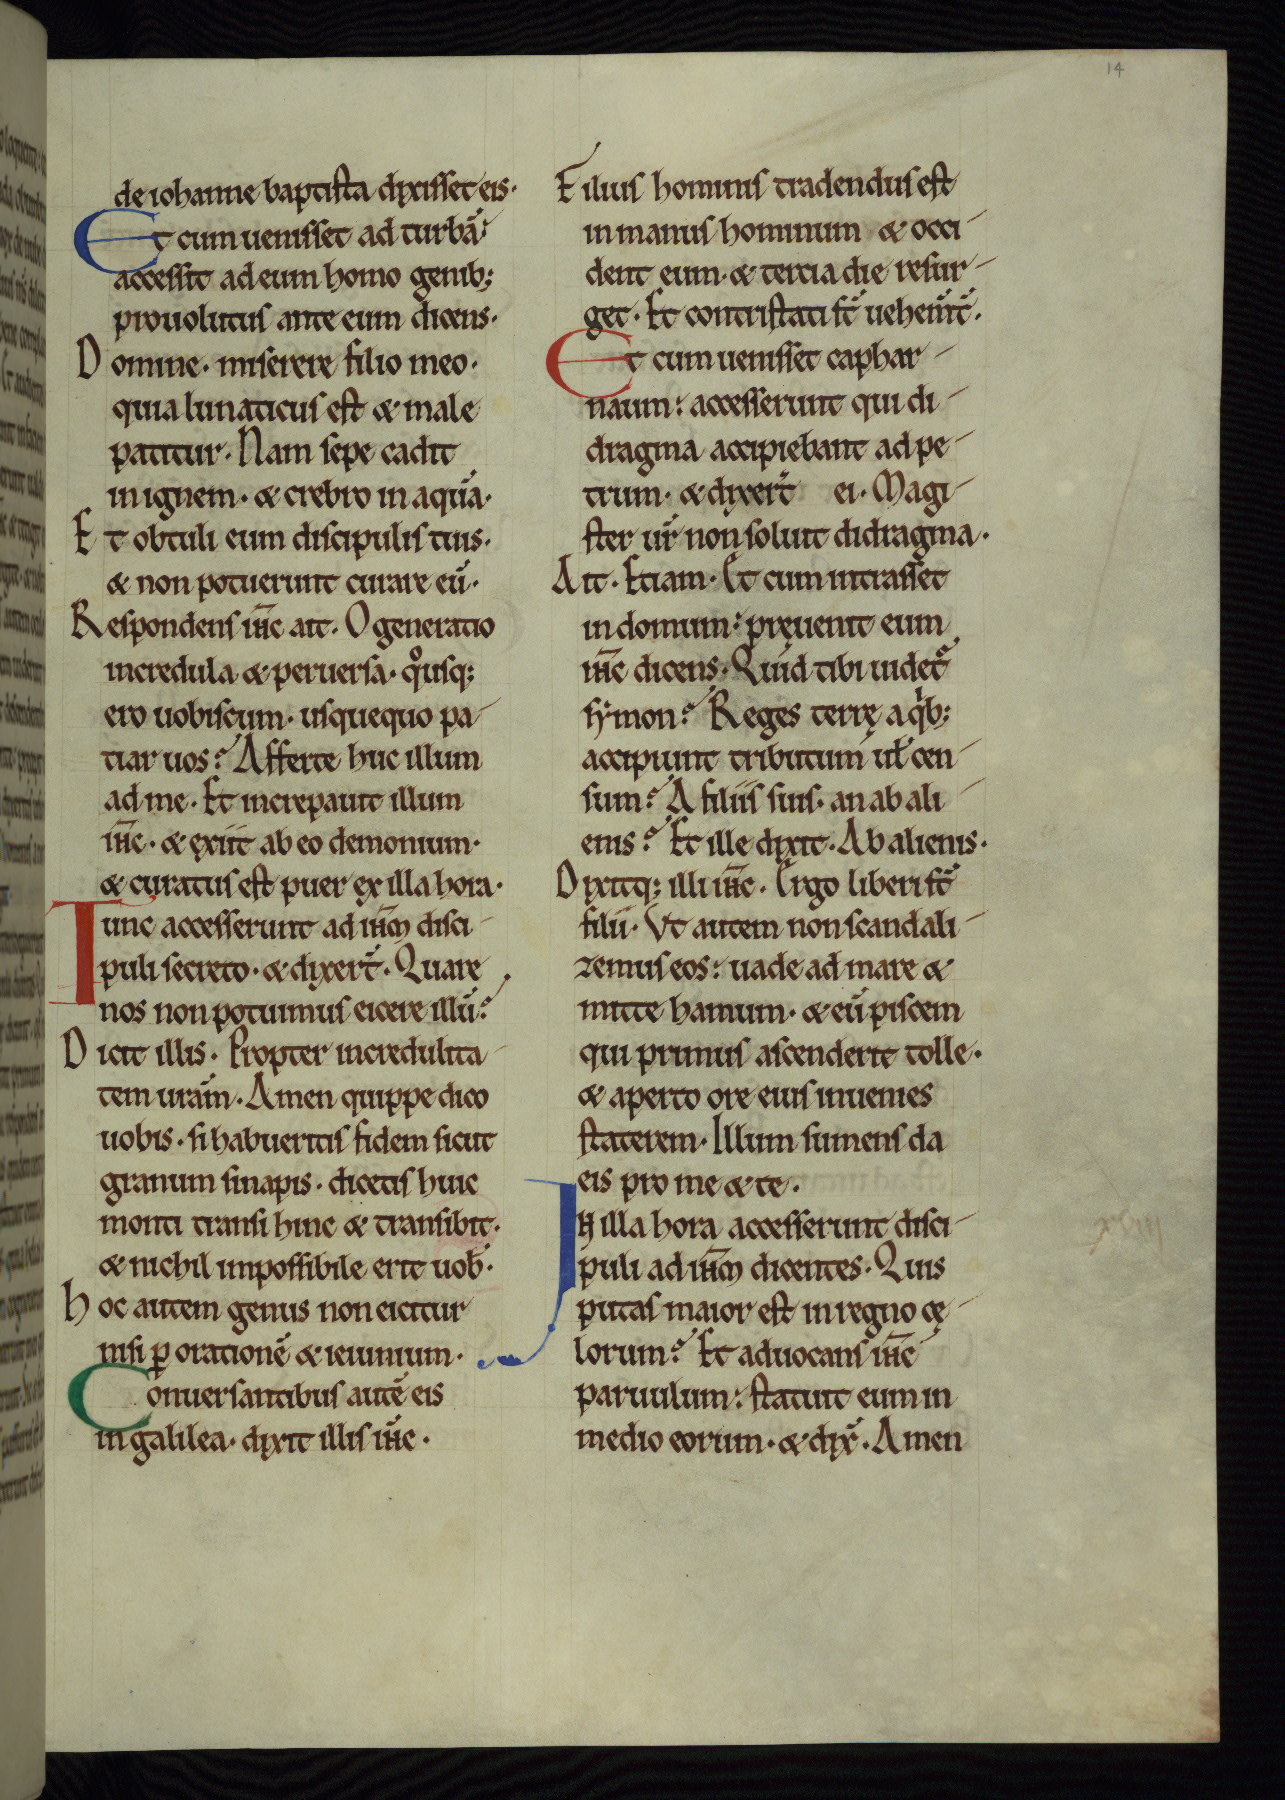 14
de iohanne baptista dixisset eis·
Et cum uenisset ad turbā
accessit ad eum homo genib;
prouolutus ante eum dicens·
Domine· miserere filio meo·
quia lunaticus est & male
patitur· Nam sepe cadit
in ignem· & crebro in aquā·
Et obtuli eum discipulis tuis·
& non potuerunt curare eū·
Respondens ihc̄ ait· O generatio
incredula & peruersa· qͦusq;
ero uobiscum· usquequo pa-
tiar uos? Afferte huc illum
ad me· Et increpauit illum
ihc̄· & exiit ab eo demonium·
& curatus est puer ex illa hora·
Tunc accesserunt ad ihm̄ disci-
puli secreto· & dixer̄t· Quare
nos non potuimus eicere illū?
Dicit illis· Propter incredulita-
tem uram̄· Amen quippe dico
uobis· si habueritis fidem sicut
granum sinapis· dicetis huic
monti transi hinc & transibit·
& nichil impossibile erit uob̄·
hoc autem genus non eicitur
nisi ꝑ orationē & ieiunium·
Conuersantibus autē eis
in galilea· dixit illis ihc̄·
Filius hominis tradendus est
in manus hominum & occi-
dent eum· & tercia die resur-
get· Et contristati st̄ uehem̄t̄·
Et cum uenisset caphar-
naum: accesserunt qui di-
dragma accipiebant ad pe-
trum· & dixer̄t ei· Magi-
ster ur̄ non soluit didragma·
Ait· Etiam· Et cum intrasset
in domum: pręuenit eum
ihc̄ dicens· Quid tibi uidet᷑
symon? Reges terrę a qͥb;
accipiunt tributum ul̄ cen-
sum? A filiis suis· an ab ali-
enis? Et ille dixit· Ab alienis·
Dixitq; illi ihc̄· Ergo liberi st̄
filii· Vt autem non scandali-
zemus eos: uade ad mare &
mitte hamum· & eū piscem
qui primus ascenderit tolle·
& aperto ore eius inuenies
staterem· Illum sumens da
eis pro me & te·
In illa hora accesserunt disci-
puli ad ihm̄ dicentes· Quis
putas maior est in regno cę-
lorum? Et aduocans ihc̄
paruulum: statuit eum in
medio eorum· & dix̄· Amen